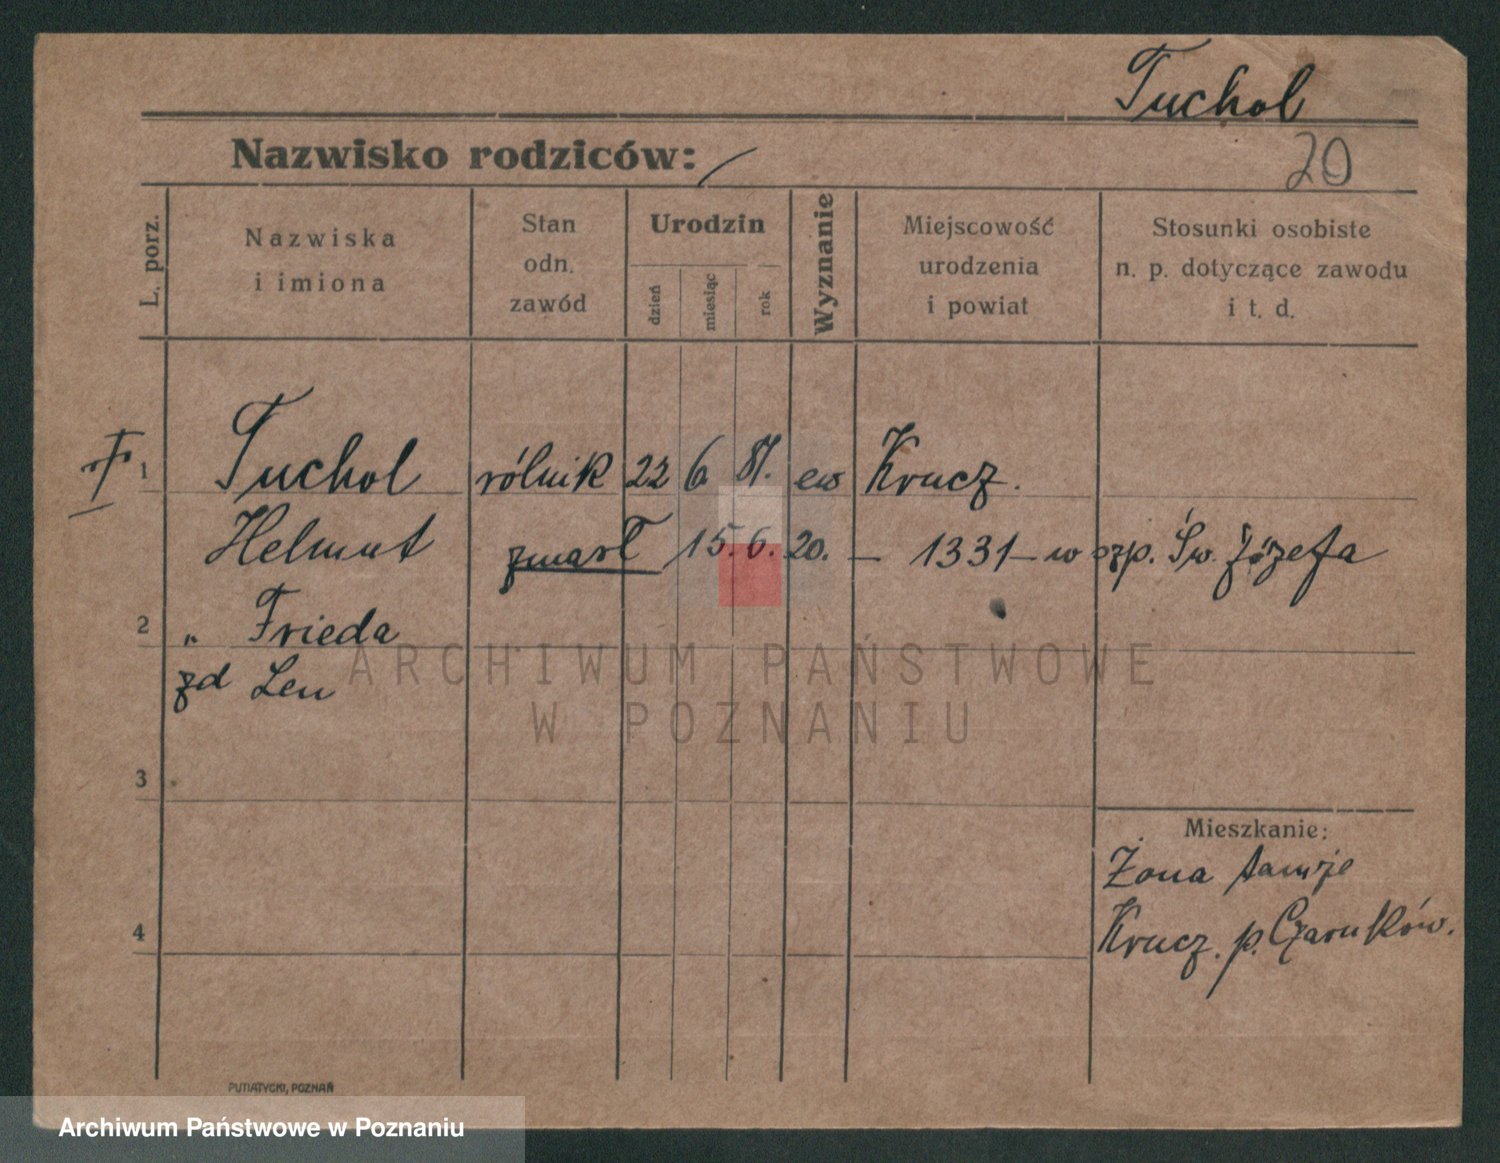 Tuchol
20
Nazwisko rodziców:
L. porz.
Nazwiska i imiona
Stan odn. zawód
Urodzin
dzień
miesiąc
rok
Wyznanie
Miejscowość urodzenia i powiat
Stosunki osobiste n. p. dotyczące zawodu i t. d.
1 Tuchol rólnik 22 6 81. ew Krucz.
Helmut zmarł 15. 6. 20. – 1331 – w szp. Św. Józefa
2 " Frieda
zd Leu
ARCHIWUM PAŃSTWOWE
W POZNANIU
3
Mieszkanie:
Żona tamże
4 Krucz. p. Czarnków.
PUTIATYCKI, POZNAŃ
Archiwum Państwowe w Poznaniu